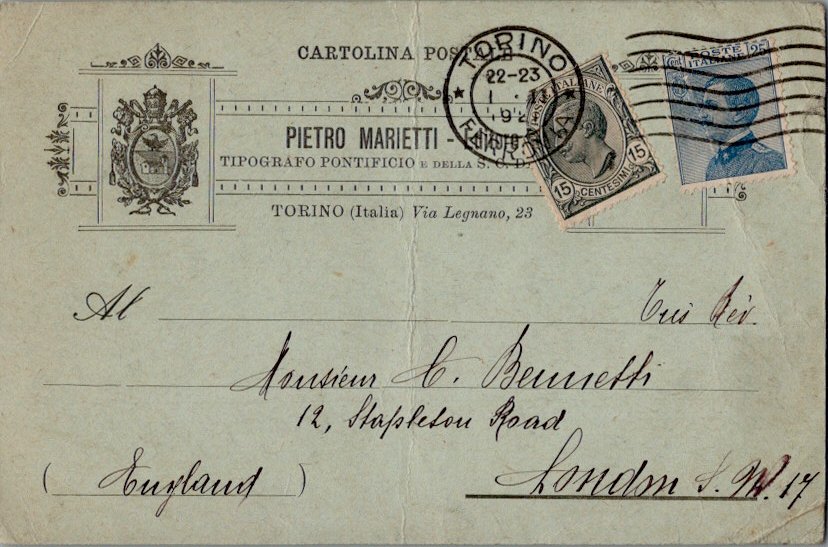 CARTOLINA POSTALE
TORINO
22-23
FERROVIA
POSTE ITALIANE
15 CENTESIMI 15
Cent. POSTE 25
ITALIANE
PIETRO MARIETTI -
TIPOGRAFO PONTIFICIO E DELLA S. C.
TORINO (Italia) Via Legnano, 23
Al
Rév.
Monsieur C. Bennetti
12, Stapleton Road
(England)
London S. W. 17